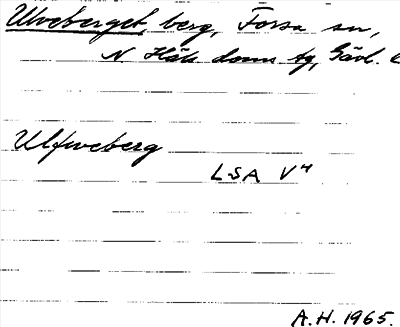 Ulveberget, berg, Forsa sn,
N Häls doms tg, Gävl. l
Ulfweberg
LSA V4
A.H. 1965.